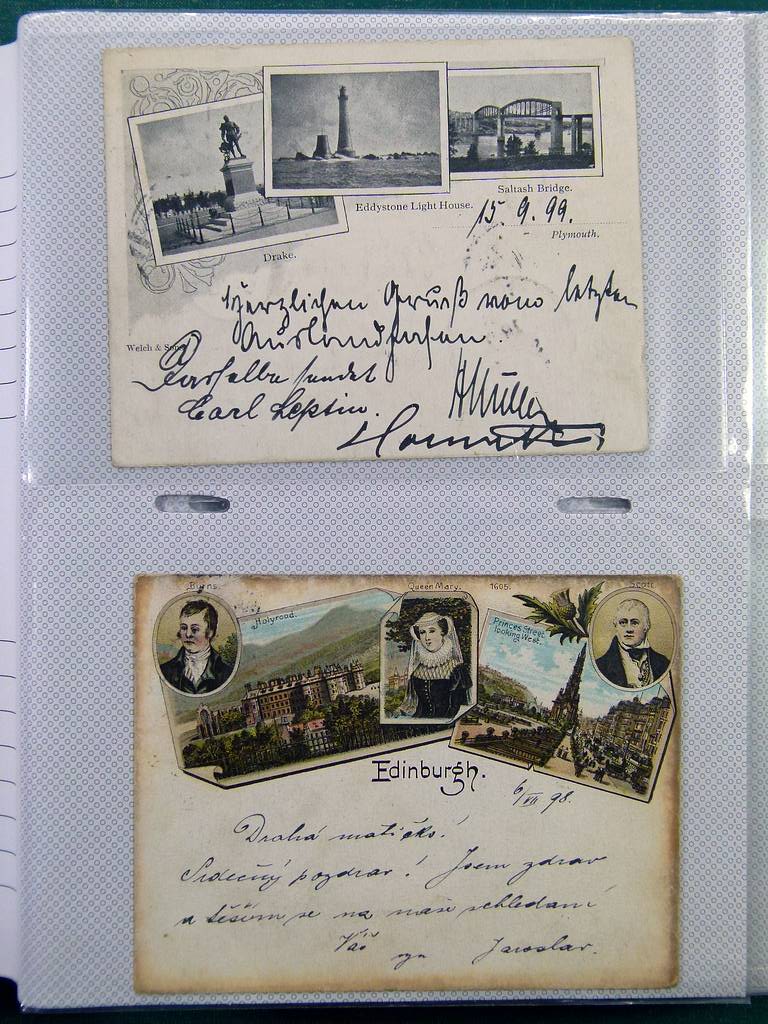 Drake.
Eddystone Light House.
Saltash Bridge.
15 9. 99.
Plymouth.
Herzlichen Gruß vom letzten
Auslandshafen.
Welch & Sons
Dasselbe sendet
Carl Leptin.
HMüller
Burns.
Holyrood.
Queen Mary.
1605.
Scott
Princes Street
looking West.
Edinburgh.
6/VII 98.
Drahá matičko!
Srdečný pozdrav! Jsem zdráv
a těším se na naše shledaní
Váš syn Jaroslav.